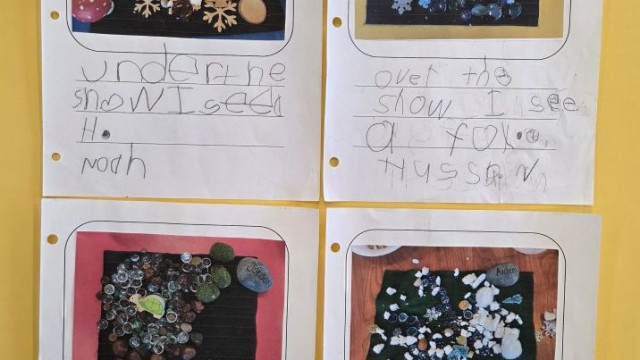 under the
snow I seea
H.
Noah
over the
snow I see
a fox.
Hussan